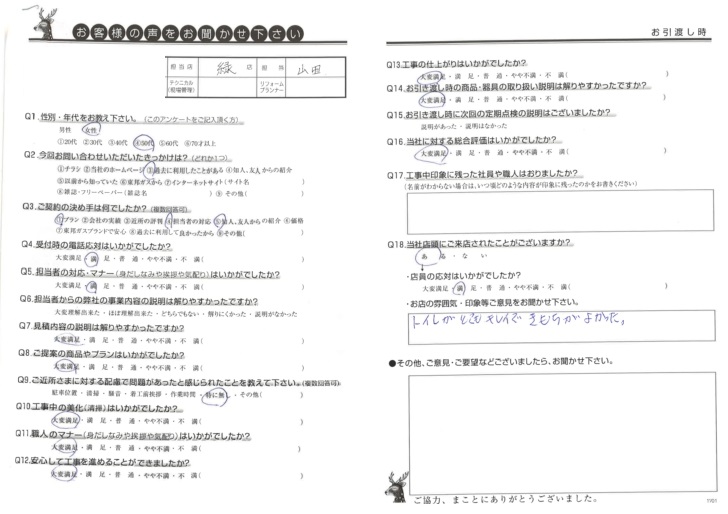 お客様の声をお聞かせ下さい
担当店 緑店 担当 山田
テクニカル(現場管理) リフォームプランナー
Q1.性別・年代をお教え下さい。(このアンケートをご記入頂く方)
男性 女性
①20代 ②30代 ③40代 ④50代 ⑤60代 ⑥70才以上
Q2.今回お問い合わせいただいたきっかけは?(どれか1つ)
①チラシ ②当社のホームページ ③過去に利用したことがある ④知人、友人からの紹介
⑤以前から知っていた ⑥東邦ガスから ⑦インターネットサイト(サイト名 )
⑧雑誌・フリーペーパー(雑誌名 ) ⑨その他( )
Q3.ご契約の決め手は何でしたか?(複数回答可)
①プラン ②会社の実績 ③近所の評判 ④担当者の対応 ⑤知人、友人からの紹介 ⑥価格
⑦東邦ガスブランドで安心 ⑧過去に利用して良かったから ⑨その他( )
Q4.受付時の電話応対はいかがでしたか?
大変満足・満足・普通・やや不満・不満( )
Q5.担当者の対応・マナー(身だしなみや挨拶や気配り)はいかがでしたか?
大変満足・満足・普通・やや不満・不満( )
Q6.担当者からの弊社の事業内容の説明は解りやすかったですか?
大変理解出来た・ほぼ理解出来た・どちらでもない・解りにくかった・説明がなかった
Q7.見積内容の説明は解りやすかったですか?
大変満足・満足・普通・やや不満・不満( )
Q8.ご提案の商品やプランはいかがでしたか?
大変満足・満足・普通・やや不満・不満( )
Q9.ご近所さまに対する配慮で問題があったと感じられたことを教えて下さい。(複数回答可)
駐車位置・清掃・騒音・着工前挨拶・作業時間・特に無し・その他( )
Q10.工事中の美化(清掃)はいかがでしたか?
大変満足・満足・普通・やや不満・不満( )
Q11.職人のマナー(身だしなみや挨拶や気配り)はいかがでしたか?
大変満足・満足・普通・やや不満・不満( )
Q12.安心して工事を進めることができましたか?
大変満足・満足・普通・やや不満・不満( )
お引渡し時
Q13.工事の仕上がりはいかがでしたか?
大変満足・満足・普通・やや不満・不満( )
Q14.お引き渡し時の商品・器具の取り扱い説明は解りやすかったですか?
大変満足・満足・普通・やや不満・不満( )
Q15.お引き渡し時に次回の定期点検の説明はございましたか?
説明があった・説明はなかった
Q16.当社に対する総合評価はいかがでしたか?
大変満足・満足・普通・やや不満・不満( )
Q17.工事中印象に残った社員や職人はおりましたか?
(名前がわからない場合は、いつ頃どのような内容が印象に残ったのかをお書きください)
Q18.当社店頭にご来店されたことがございますか?
ある・ない
・店員の応対はいかがでしたか?
大変満足・満足・普通・やや不満・不満( )
・お店の雰囲気・印象等ご意見をお聞かせ下さい。
トイレがとてもキレイで きもちがよかった。
●その他、ご意見・ご要望などございましたら、お聞かせ下さい。
ご協力、まことにありがとうございました。